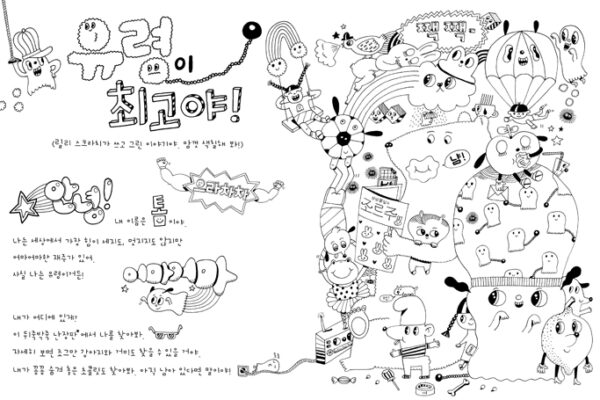 유령이
최고야!
(릴리 스크래치가 쓰고 그린 이야기야. 맘껏 색칠해 봐!)
안녕!
으라차차
내 이름은 톰이야.
나는 세상에서 가장 힘이 세지도, 멋지지도 않지만
어마어마한 재주가 있어.
사실 나는 유령이거든!
내가 어디에 있게?
이 뒤죽박죽 난장판에서 나를 찾아봐.
자세히 보면 조그만 강아지와 거미도 찾을 수 있을 거야.
내가 꽁꽁 숨겨 놓은 초콜릿도 찾아봐. 아직 남아 있다면 말이야!
짹짹
냠!